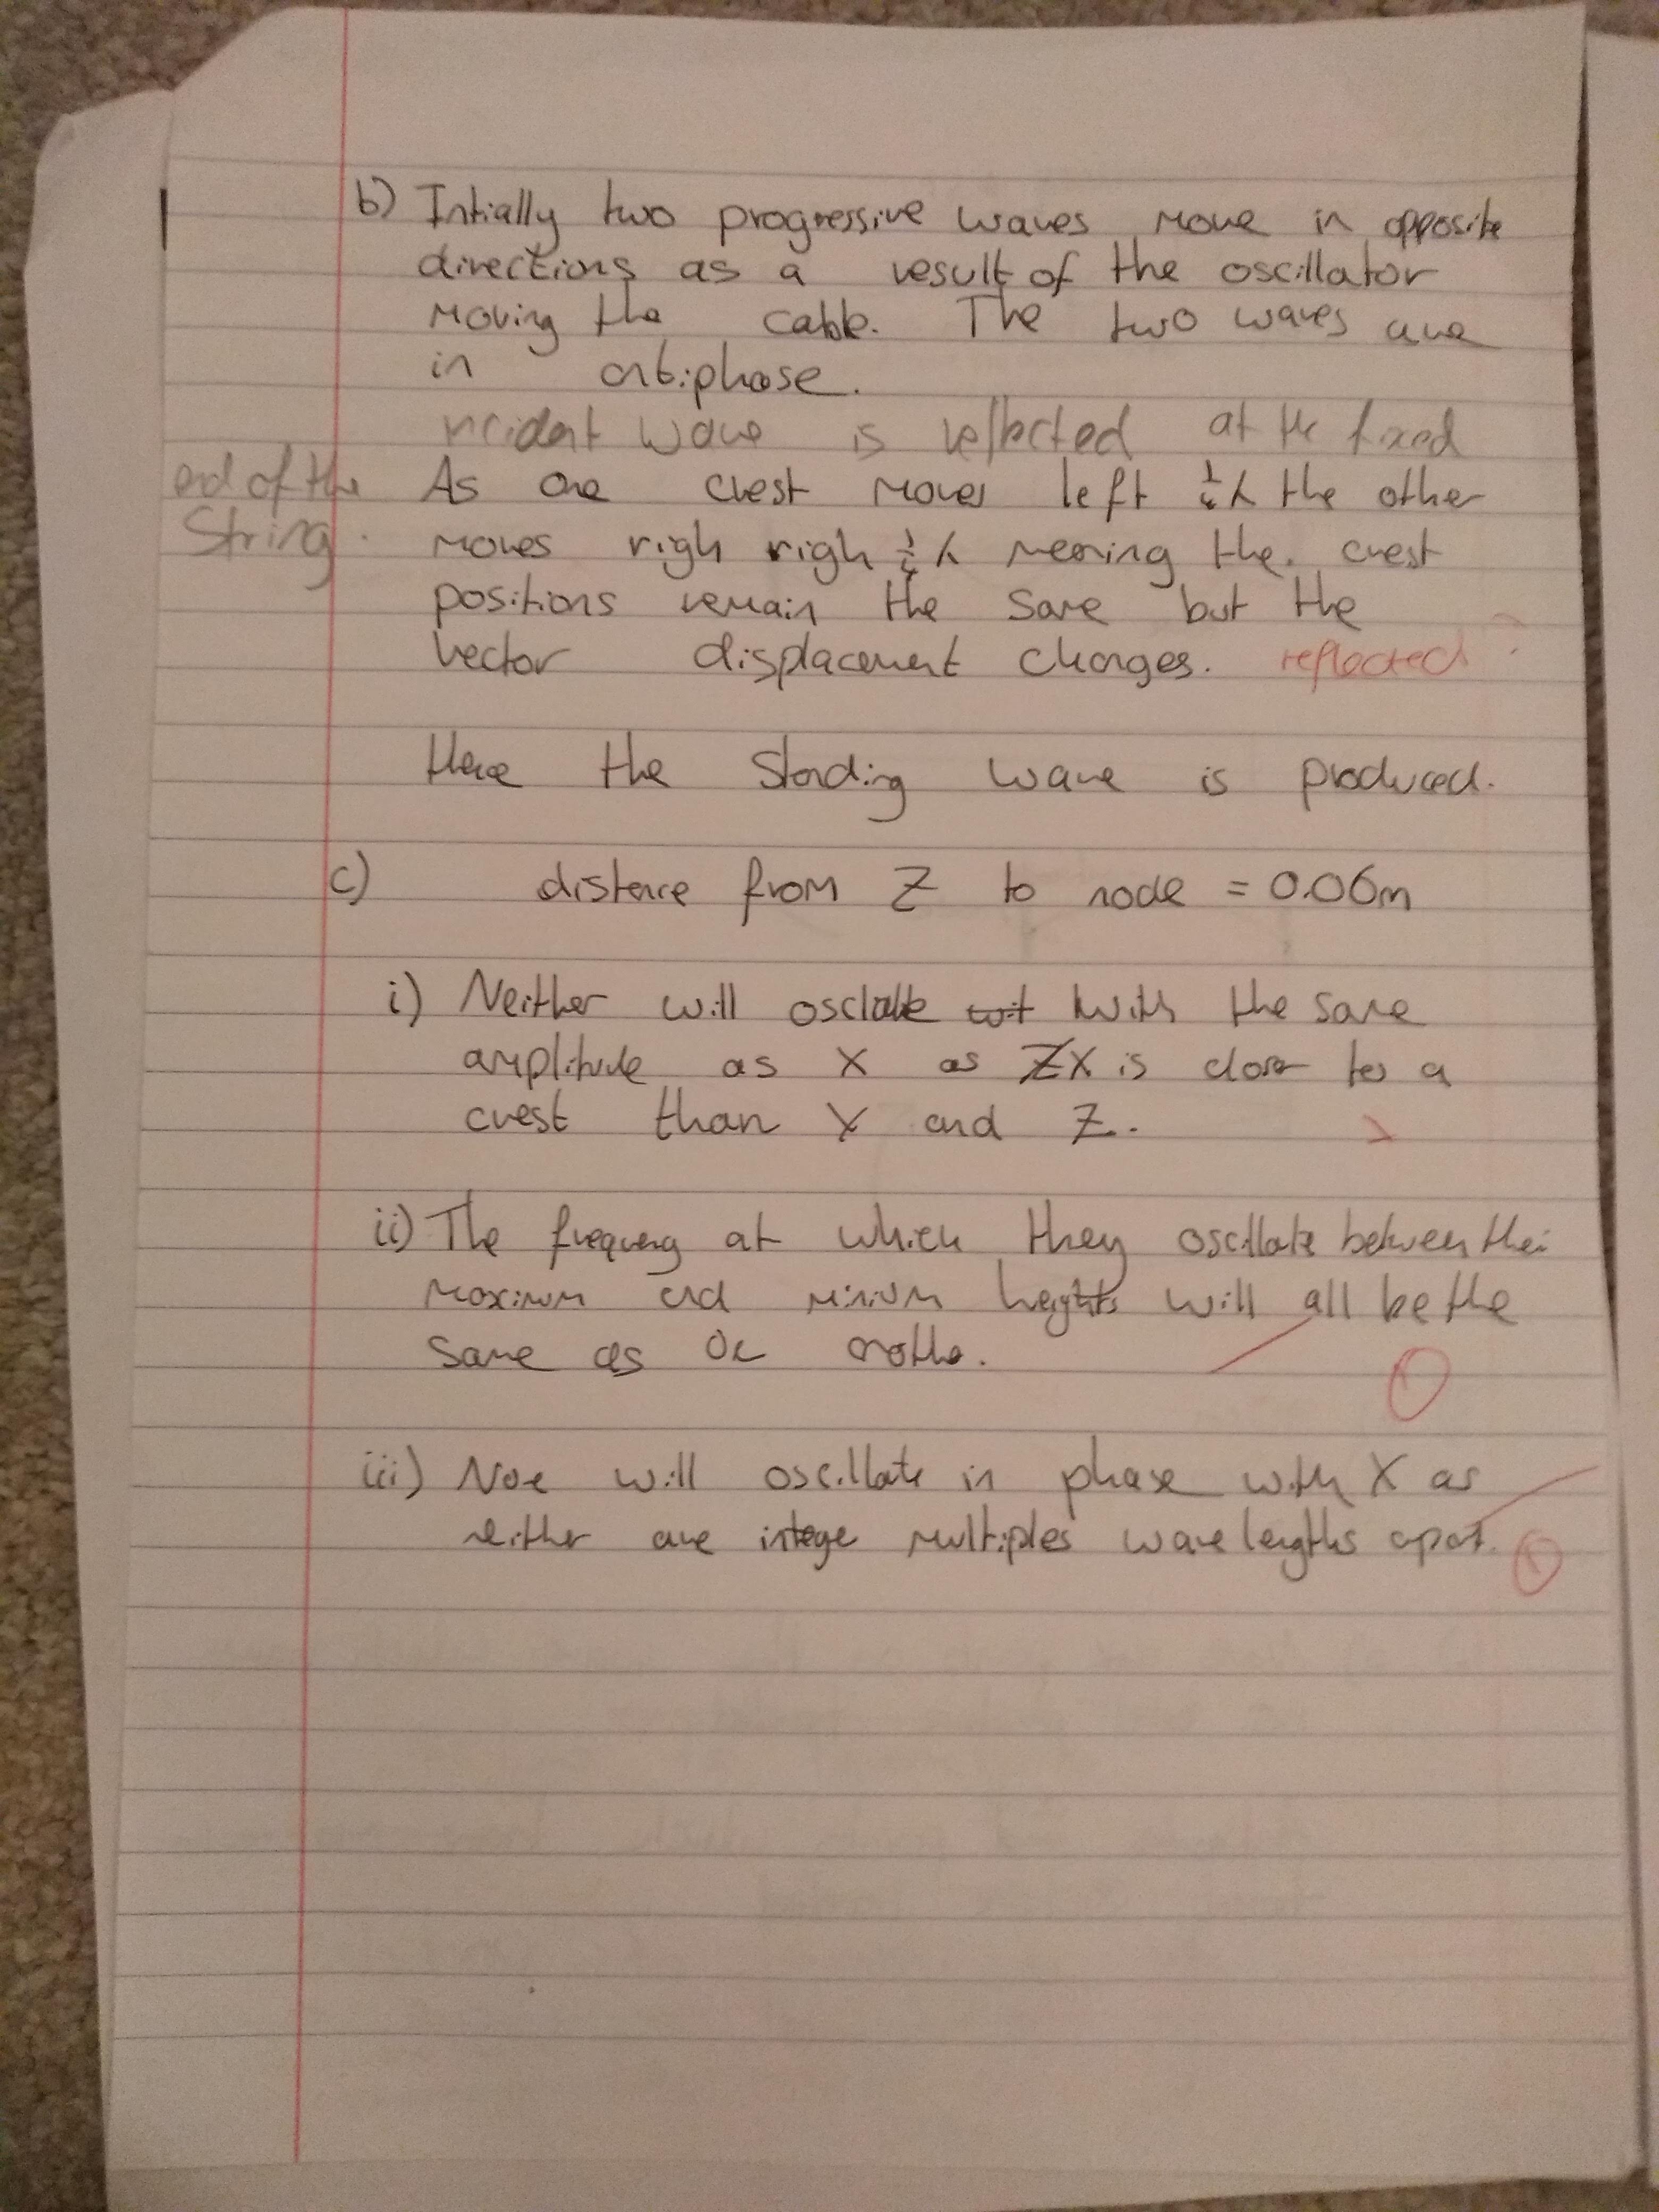 b) Intially two progressive waves move in opposite
directions as a result of the oscillator
moving the cable. The two waves are
in antiphase.
incident wave is reflected at the fixed
end of the
string.
As one crest moves left ¼λ the other
moves righ righ ¼λ meaning the crest
positions remain the same but the
vector displacement changes. reflected ?
Hence the standing wave is produced.
c) distance from Z to node = 0.06m
i) Neither will osclate wit with the same
amplitude as X as Z X is closer to a
crest than Y and Z.
ii) The frequency at which they oscillate between their
maximum and minium heights will all be the
same as one another.
1
iii) None will oscillate in phase with X as
neither are intege multiples wavelengths apart.
1